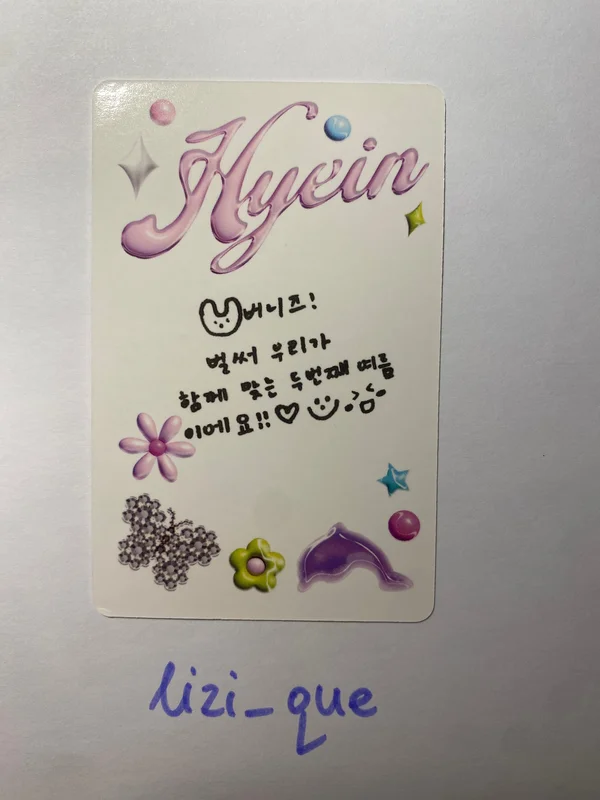 Hyein
버니즈!
벌써 우리가
함께 맞는 두번째 여름
이에요!!
lizi_que